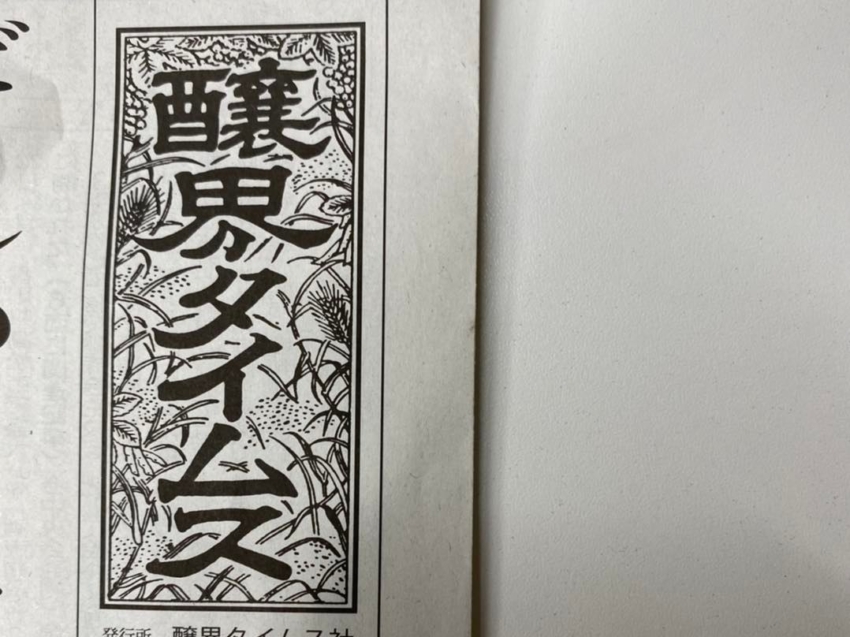 醸界タイムス
発行所 醸界タイムス社